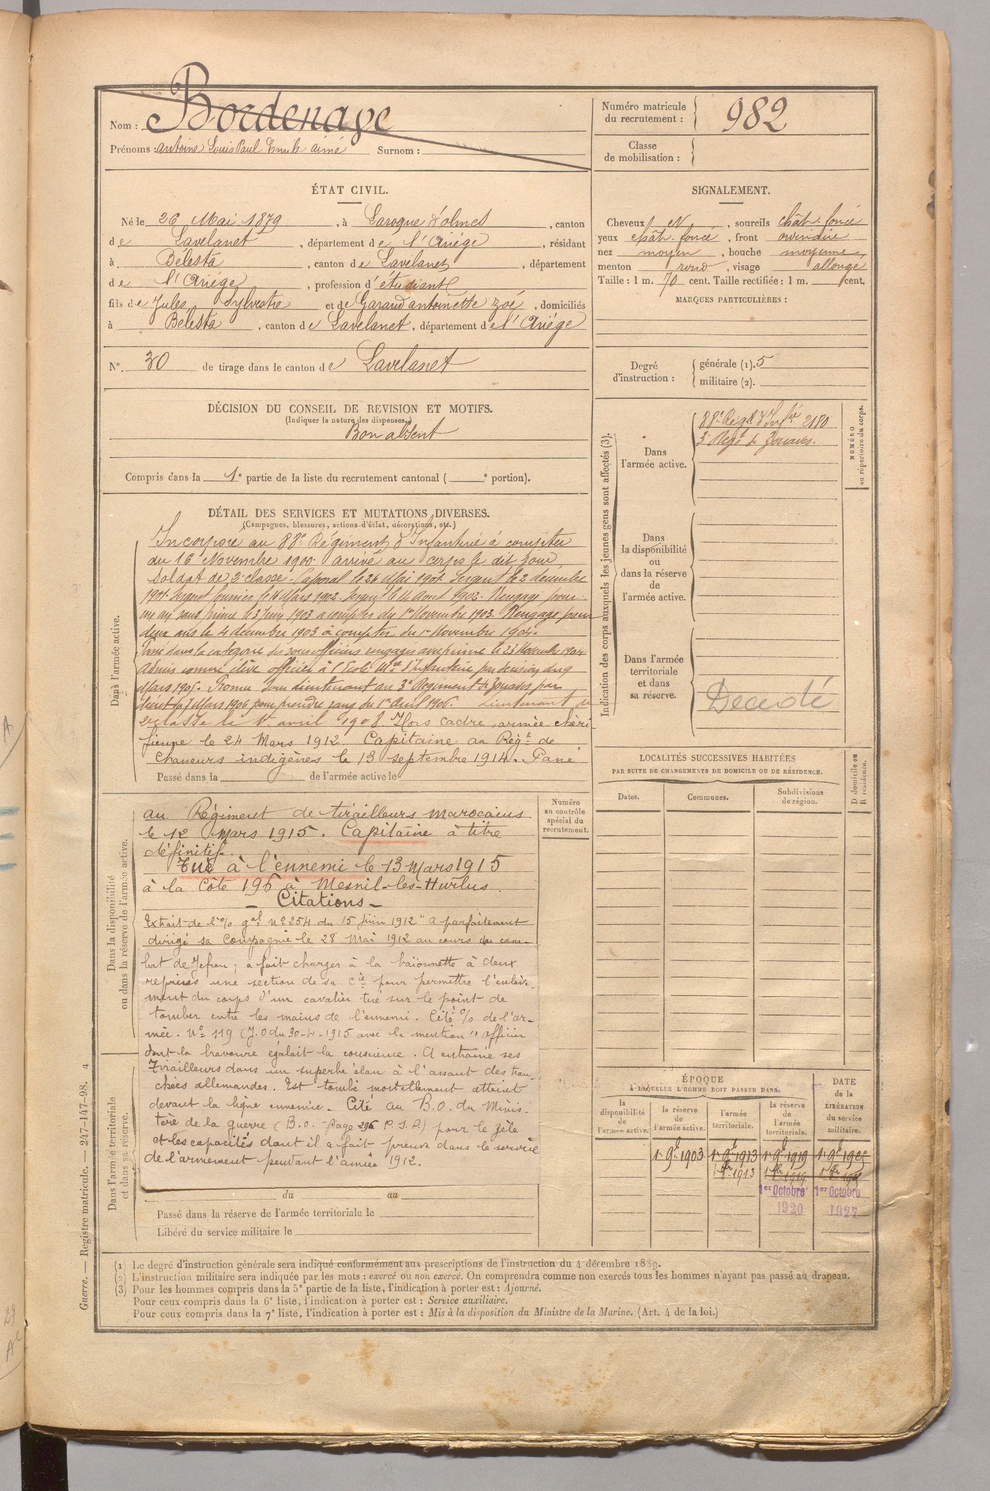 Nom : Bordenage
Prénoms : Antoine Louis Paul Emile Aimé Surnom :
Numéro matricule du recrutement : 982
Classe de mobilisation :
ÉTAT CIVIL.
Né le 26 Mai 1879, à Laroque d'Olmes, canton
de Lavelanet, département de l'Ariége, résidant
à Bélesta, canton de Lavelanet, département
de l'Ariége, profession d'étudiant
fils de Jules Sylvestre et de Garaud antoinette Zoé, domiciliés
à Bélesta, canton de Lavelanet, département de l'Ariége
N° 30 de tirage dans le canton de Lavelanet
SIGNALEMENT.
Cheveux, sourcils chât. foncé
yeux chât. foncé, front ordinaire
nez moyen, bouche moyenne
menton rond, visage allongé
Taille : 1 m. 70 cent. Taille rectifiée : 1 m. cent.
MARQUES PARTICULIÈRES :
Degré d'instruction : générale (1). 5
militaire (2).
DÉCISION DU CONSEIL DE REVISION ET MOTIFS.
(Indiquer la nature des dispenses.)
Bon absent
Compris dans la 1e partie de la liste du recrutement cantonal ( e portion).
DÉTAIL DES SERVICES ET MUTATIONS DIVERSES.
(Campagnes, blessures, actions d'éclat, décorations, etc.)
Dans l'armée active.
Incorporé au 88e Régiment d'Infanterie à compter
du 16 Novembre 1900 arrivé au corps le dit jour,
Soldat de 2e classe. Caporal le 26 Mai 1901. Sergent le 2 décembre
1901. Sergent fourrier le 14 Mars 1902. Sergent le 14 Août 1902. Rengagé pour
un an sans prime le 3 Juin 1903 à compter du 1er Novembre 1903. Rengagé pour
deux ans le 4 décembre 1903 à compter du 1er Novembre 1904.
Passé dans la catégorie des sous officiers rengagés avec prime le 23 Novembre 1904
Admis comme élève officier à l'Ecole Mre d'Infanterie par décision du 9
Mars 1905. Promu Sous lieutenant au 3e Régiment de Zouaves par
décret du 7 Mars 1906 pour prendre rang du 1er Avril 1906. Lieutenant de
2e classe le 1er avril 1908 Hors cadre, armée chéri
fienne le 24 Mars 1912. Capitaine au Régt de
Chasseurs indigènes le 13 septembre 1914. Passé
Passé dans la de l'armée active le
Dans la disponibilité ou dans la réserve de l'armée active.
au Régiment de tirailleurs marocains
le 12 Mars 1915. Capitaine à titre
définitif.
Tué à l'ennemi le 13 Mars 1915
à la Côte 196 à Mesnil-les-Hurlus.
- Citations -
Extrait de l'o/o gal n° 254 du 15 Juin 1912 "a parfaitement
dirigé sa Compagnie le 28 Mai 1912 au cours du com-
bat de Sefrou ; a fait charger à la baïonnette à deux
reprises une section de sa Cie pour permettre l'enlève-
ment du corps d'un cavalier tué sur le point de
tomber entre les mains de l'ennemi. Cité o/o de l'ar-
mée. N° 119 (J.O du 30-4-1915 avec la mention "officier
dont la bravoure égalait la conscience. A entraîné ses
Tirailleurs dans un superbe élan à l'assaut des tran-
chées allemandes. Est tombé mortellement atteint
devant la ligne ennemie. Cité au B.O. du Minis-
tère de la guerre (B.O. Page 296 P.S.P.) pour le zèle
et les capacités dont il a fait preuve dans le service
de l'armement pendant l'année 1912.
Dans l'armée territoriale et dans sa réserve.
du au
Passé dans la réserve de l'armée territoriale le
Libéré du service militaire le
Numéro au contrôle spécial du recrutement.
Indication des corps auxquels les jeunes gens sont affectés (3).
Dans l'armée active.
88e Régt d'Infrie 2180
3e Régt de Zouaves.
NUMÉRO au répertoire du corps.
Dans la disponibilité ou dans la réserve de l'armée active.
Dans l'armée territoriale et dans sa réserve.
Décédé
LOCALITÉS SUCCESSIVES HABITÉES
PAR SUITE DE CHANGEMENTS DE DOMICILE OU DE RÉSIDENCE.
Dates. Communes. Subdivisions de région. D domicile ou R résidence.
ÉPOQUE
À LAQUELLE L'HOMME DOIT PASSER DANS
la disponibilité de l'armée active. la réserve de l'armée active. l'armée territoriale. la réserve de l'armée territoriale.
DATE de la LIBÉRATION du service militaire.
1er 9bre 1903 1er 9bre 1913 1er 9bre 1919
1er 8bre 1913 1er 8bre 1919
1er Octobre 1er Octobre
1920 1927
(1 Le degré d'instruction générale sera indiqué conformément aux prescriptions de l'instruction du 4 décembre 1889.
(2) L'instruction militaire sera indiquée par les mots : exercé ou non exercé. On comprendra comme non exercés tous les hommes n'ayant pas passé au drapeau.
(3) Pour les hommes compris dans la 5e partie de la liste, l'indication à porter est : Ajourné.
Pour ceux compris dans la 6e liste, l'indication à porter est : Service auxiliaire.
Pour ceux compris dans la 7e liste, l'indication à porter est : Mis à la disposition du Ministre de la Marine. (Art. 4 de la loi.)
Guerre. — Registre matricule. — 247-147-98. 4